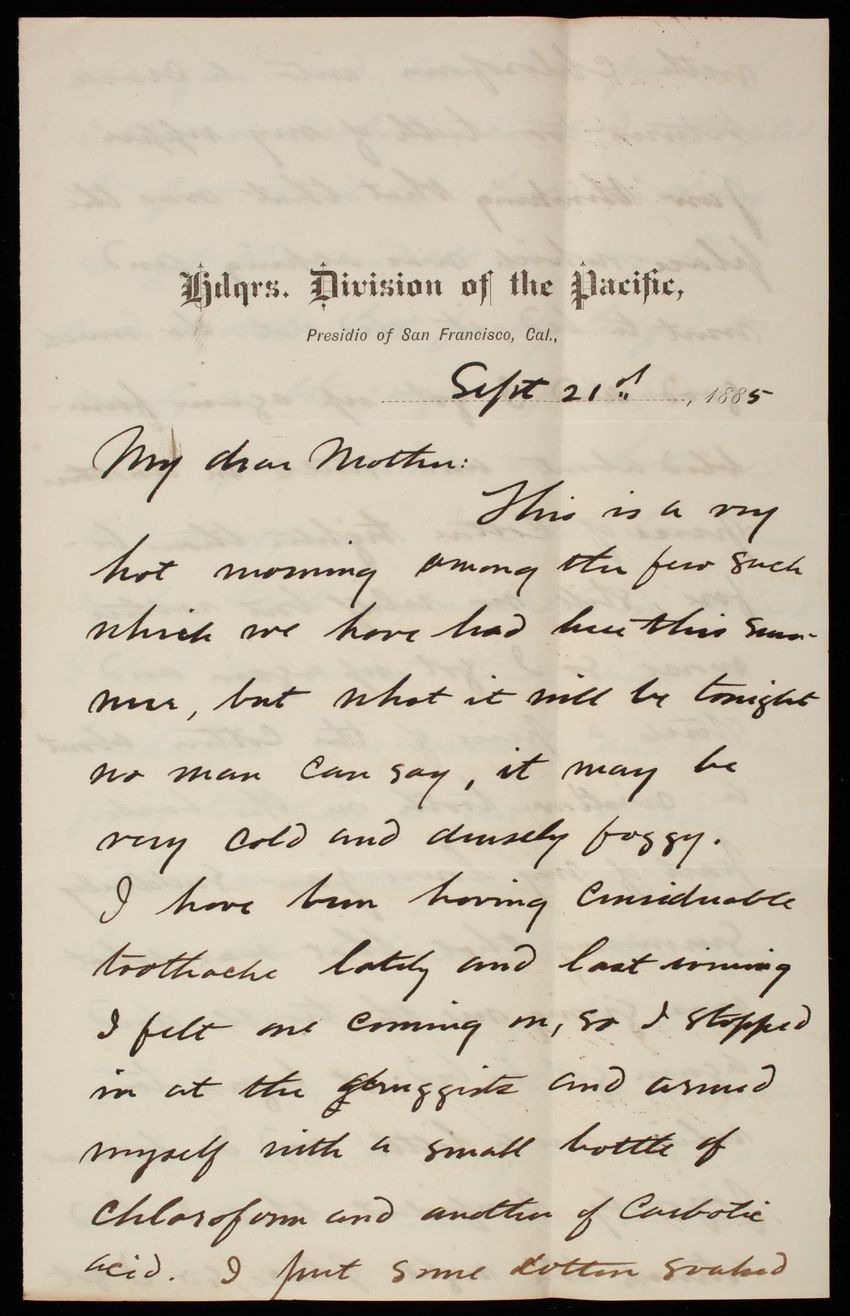 Hdqrs. Division of the Pacific,
Presidio of San Francisco, Cal.,
Sept 21st, 1885
My dear Mother:
This is a very
hot morning among the few such
which we have had here this sum-
mer, but what it will be tonight
no man can say, it may be
very cold and densely foggy.
I have been having considerable
toothache lately and last evening
I felt one coming on, so I stopped
in at the druggists and armed
myself with a small bottle of
chloroform and another of Carbolic
acid. I put some cotton soaked